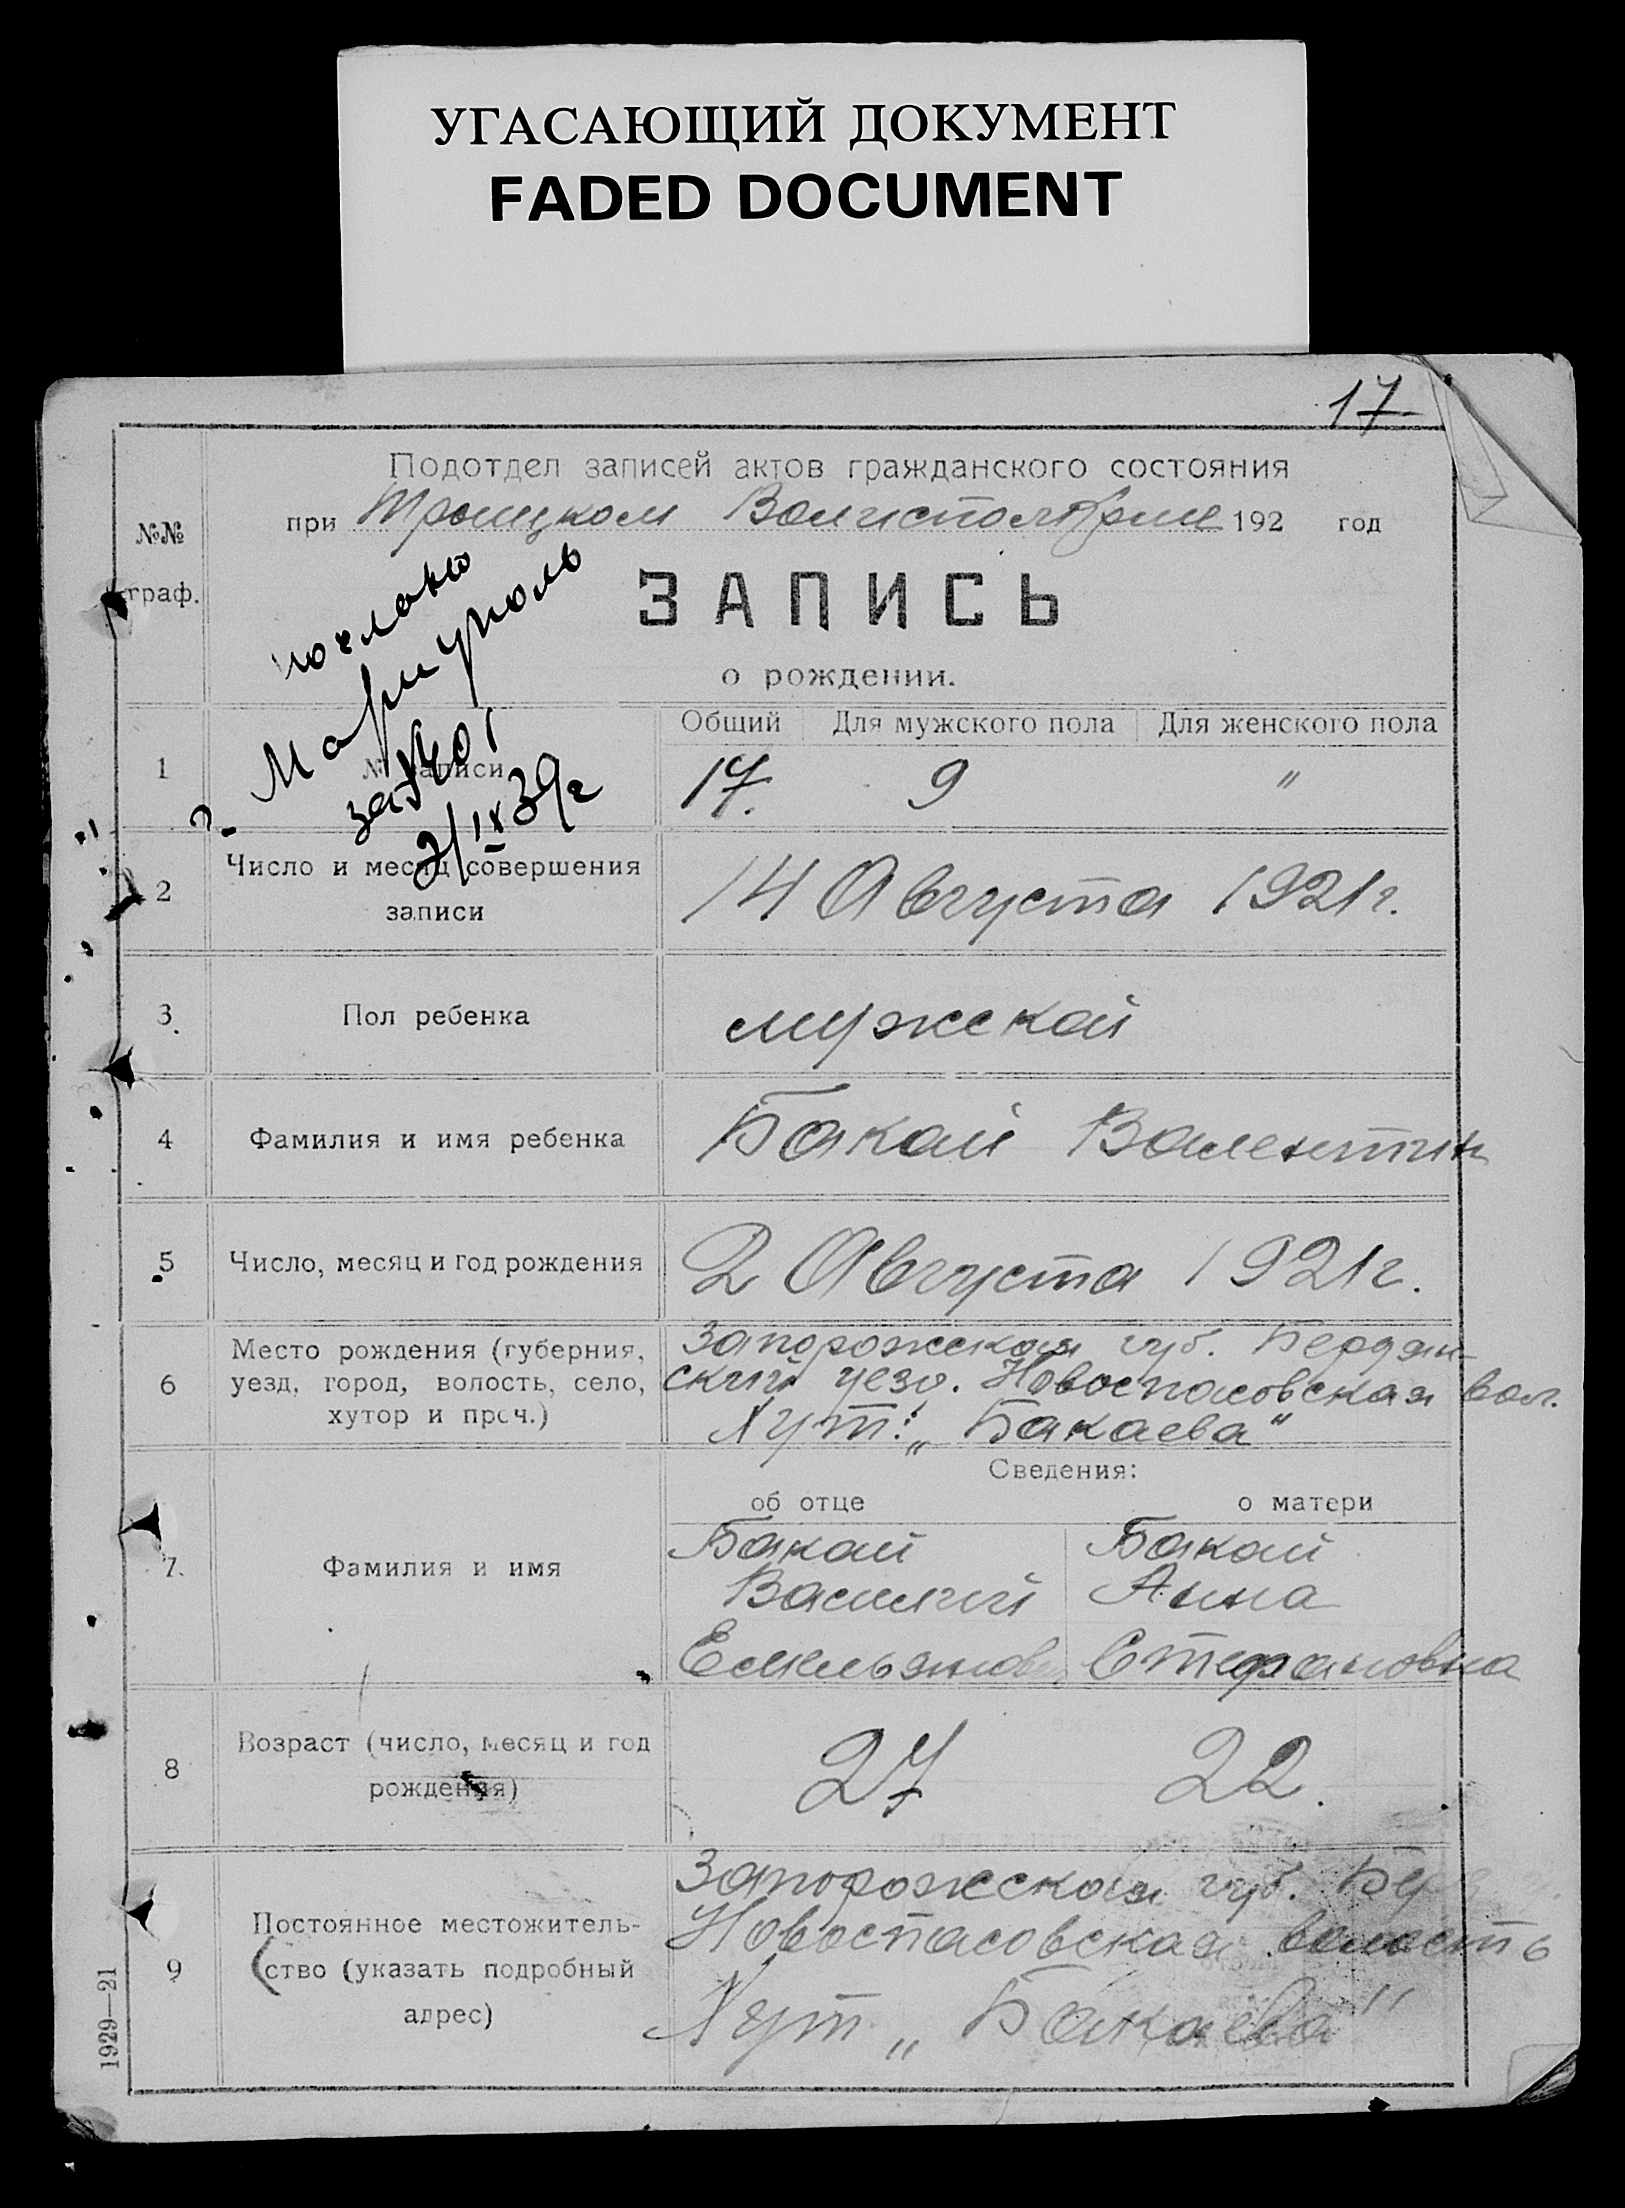 УГАСАЮЩИЙ ДОКУМЕНТ
FADED DOCUMENT
17
Подотдел записей актов гражданского состояния
при Троицком Волисполкоме 192 год
№№
граф.
ЗАПИСЬ
о рождении.
послано
г. Мариуполь
за № 401
2/IX 39г
Общий Для мужского пола Для женского пола
1 № записи 17. 9 "
2 Число и месяц совершения
записи
14 Августа 1921г.
3. Пол ребенка мужской
4 Фамилия и имя ребенка Бакай Валентин
5 Число, месяц и год рождения 2 Августа 1921г.
6 Место рождения (губерния,
уезд, город, волость, село,
хутор и проч.)
Запорожская губ. Бердян-
ский уезд. Новоспасовская вол.
Хут. „Бакаева"
Сведения:
об отце о матери
7. Фамилия и имя
Бакай Бакай
Василий Анна
Емельянов Стефановна
8 Возраст (число, месяц и год
рождения)
27 22.
9 Постоянное местожитель-
ство (указать подробный
адрес)
Запорожская губ.
Новоспасовская волость
Хут „Бакаева"
1929—21